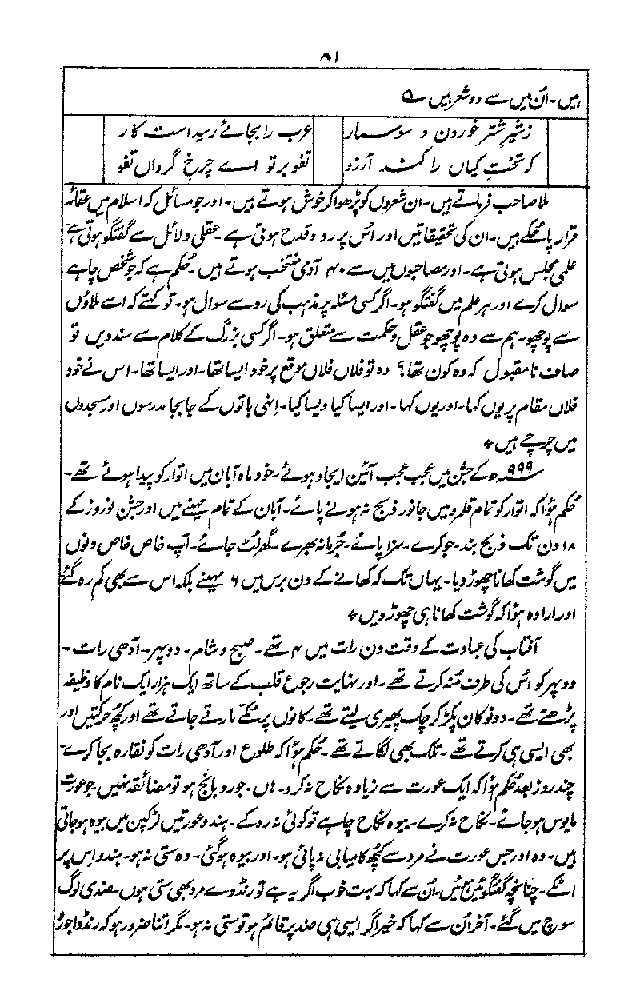 ۸۱
ہیں۔ اُن میں سے دو شعر ہیں ؎
زشیر شتر خوردن و سوسمار عرب را بجائے رسیداست کار
کہ تخت کیاں را کنند آرزو تفو بر تو اے چرخ گرداں تفو
ملا صاحب فرماتے ہیں۔ ان شعروں کو پڑھوا کر خوش ہوتے ہیں۔ اور جو مسائل کہ اسلام میں عقائد
قرار پا چکے ہیں۔ ان کی تحقیقاتیں اور اُس پر رد و قدح ہوتی ہے۔ عقلی دلائل سے گفتگو ہوتی ہے
علمی مجلس ہوتی ہے۔ اور مصاحبوں میں سے ۴۰ آدمی منتخب ہوتے ہیں۔ حکم ہے کہ جو شخص چاہے
سوال کرے اور ہر علم میں گفتگو ہو۔ اگر کسی مسئلہ پر مذہب کی رو سے سوال ہو۔ تو کہتے کہ اسے ملاؤں
سے پوچھو۔ ہم سے وہ پوچھو جو عقل و حکمت سے متعلق ہو۔ اگر کسی بزرگ کے کلام سے سند دیں تو
صاف نامقبول کہ وہ کون تھا؟ وہ تو فلاں فلاں موقع پر خود ایسا تھا۔ اور ایسا تھا۔ اس نے خود
فلاں مقام پر یوں کہا۔ اور یوں کہا۔ اور ایسا کیا ویسا کیا۔ انہی باتوں کے جابجا مدرسوں اور مسجدوں
میں چرچے ہیں ٭
۹۹۹ھ کے جشن میں عجب عجب آئین ایجاد ہوئے۔ خود ماہ آبان میں اتوار کو پیدا ہوئے تھے۔
حکم ہوا کہ اتوار کو تمام قلمرو میں جانور ذبح نہ ہونے پائے۔ آبان کے تمام مہینے میں اور جشن نوروز کے
۱۸ دن تک ذبح بند۔ جو کرے۔ سزا پائے۔ جرمانہ بھرے۔ گھر لٹ جائے۔ آپ خاص خاص دنوں
میں گوشت کھانا چھوڑ دیا۔ یہاں تک کہ کھانے کے دن برس میں ۶ مہینے بلکہ اس سے بھی کم رہ گئے
اور ارادہ ہوا کہ گوشت کھانا ہی چھوڑ دیں ٭
آفتاب کی عبادت کے وقت دن رات میں ۴ تھے۔ صبح و شام۔ دوپہر۔ آدھی رات۔
دوپہر کو اُس کی طرف منہ کرتے تھے۔ اور نہایت رجوع قلب کے ساتھ ایک ہزار ایک نام کا وظیفہ
پڑھتے تھے۔ دونو کان پکڑ کر چک پھیری لیتے تھے۔ کانوں پر مکے مارتے جاتے تھے اور کچھ حرکتیں اور
بھی ایسی ہی کرتے تھے۔ تلک بھی لگاتے تھے۔ حکم ہوا کہ طلوع اور آدھی رات کو نقارہ بجا کرے۔
چند روز بعد حکم ہوا کہ ایک عورت سے زیادہ نکاح نہ کرو۔ ہاں۔ جورو بانجھ ہو تو مضائقہ نہیں۔ جو عورت
مایوس ہو جائے۔ نکاح نہ کرے۔ بیوہ نکاح چاہے تو کوئی نہ روکے۔ ہندو عورتیں لڑکپن میں بیوہ ہو جاتی
ہیں۔ وہ اور جس عورت نے مرد سے کچھ کامیابی نہ پائی ہو۔ اور بیوہ ہو گئی۔ وہ ستی نہ ہو۔ ہندو اس پر
اٹکے۔ چنانچہ گفتگوئیں ہوئیں۔ اُن سے کہا کہ بہت خوب اگر یہ ہے تو رنڈوے مرد بھی ستی ہوں۔ ضدی لوگ
سوچ میں گئے۔ آخر اُن سے کہا کہ خیر اگر ایسی ہی ضد پر قائم ہو تو ستی نہ ہو۔ مگر اتنا ضرور ہو کہ رنڈوا جورو